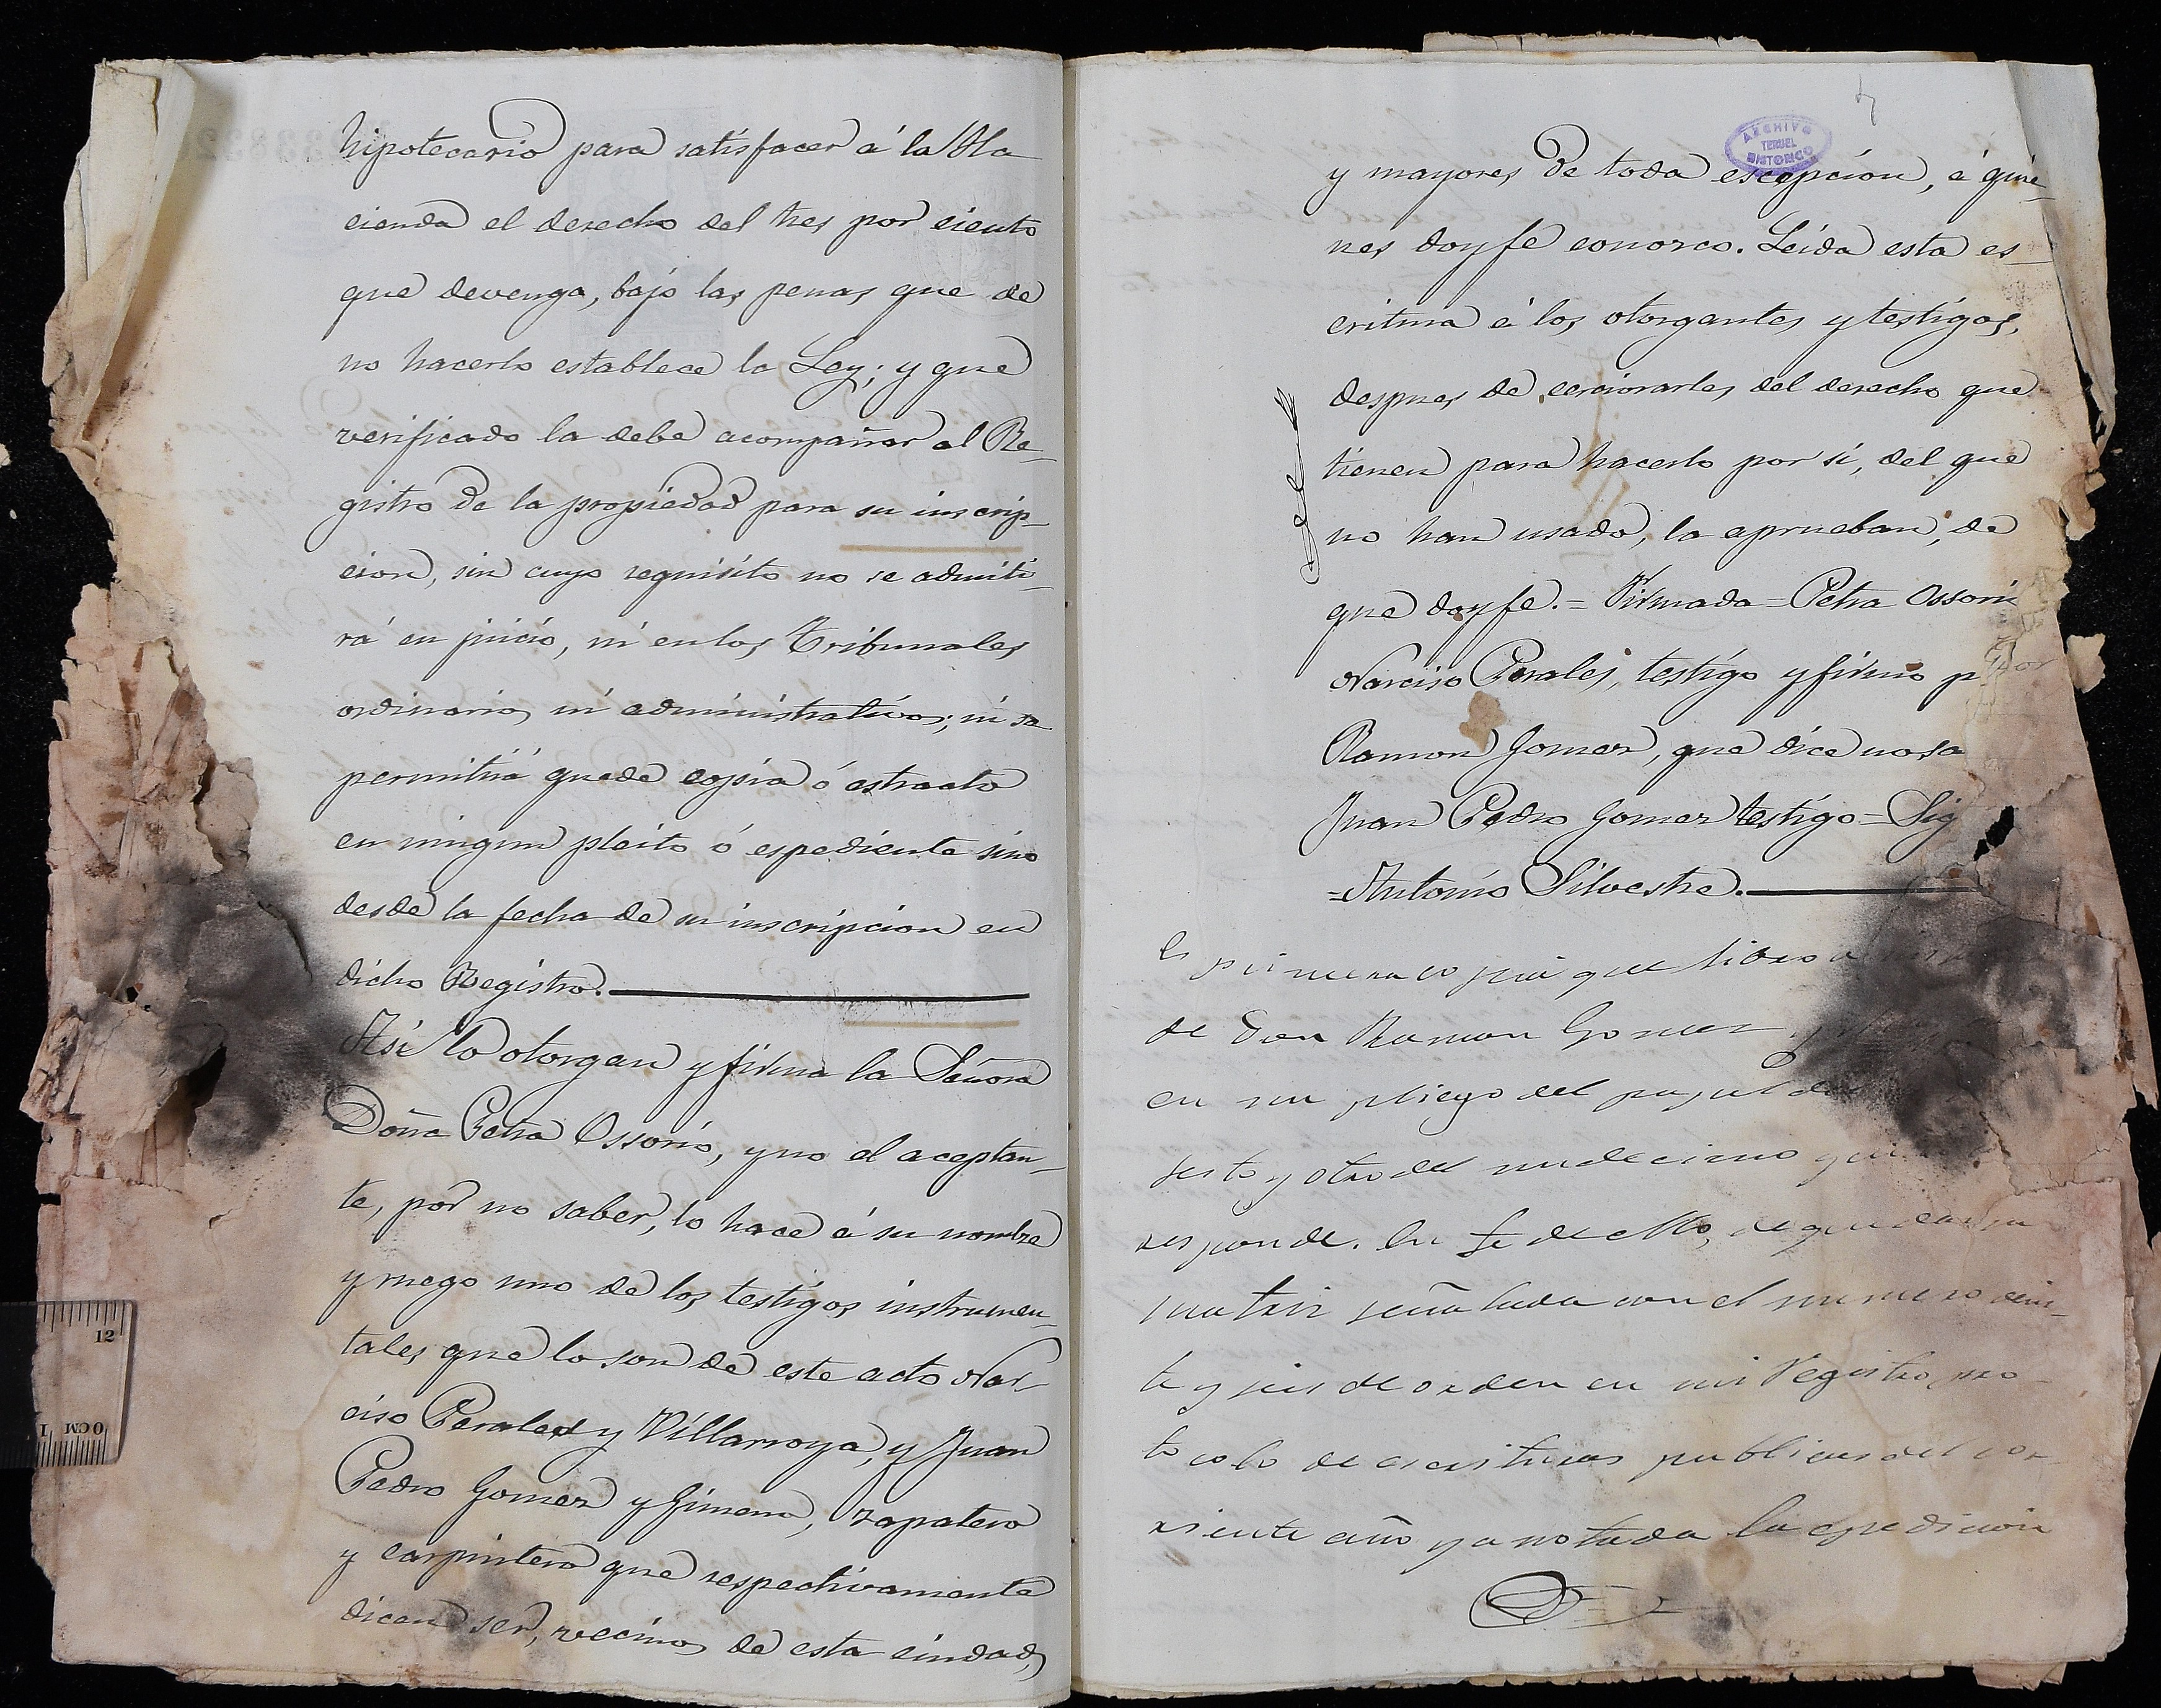 hipotecario para satisfacer á la Ha
cienda el derecho del tres por ciento
que devenga, bajo las penas que de
no hacerlo establece la Ley; y que
verificado la debe acompañar al Re-
gistro de la propiedad para su inscrip-
cion, sin cuyo requisito no se admiti-
rá en juicio, ni en los Tribunales
ordinarios ni administrativos; ni se
permitirá quede copia ó estracto
en ningun pleito ó espediente sino
desde la fecha de su inscripcion en
dicho Registro.
Asi lo otorgan y firma la Señora
Doña Petra Ossorio, y no el aceptan-
te, por no saber, lo hace á su nombre
y ruego uno de los testigos instrumen-
tales que lo son de este acto Nar-
ciso Perales y Villarroya, y Juan
Pedro Gomez y Gimeno, zapatero
y carpintero que respectivamente
dicen ser, vecinos de esta ciudad,
ARCHIVO
TERUEL
HISTORICO
y mayores de toda escepcion, á quie-
nes doy fe conozco. Leida esta es-
critura á los otorgantes y testigos,
despues de cerciorarles del derecho que
tienen para hacerlo por si, del que
no han usado, la aprueban, de
que doy fe.= Firmada = Petra Ossori
Narciso Perales, testigo y firmo por
Ramon Gomez, que dice no sa
Juan Pedro Gomez testigo = Sig
=Antonio Silvestre.
Es primera copia que libro a
de Don Ramon Gomez
en un pliego del papel del
sesto y otro del undecimo que
responde. En fe de ello, de quedar su
matriz señalada con el numero vein-
te y seis de orden en mi Registro pro-
tocolo de escrituras publicas del cor-
riente año y anotada la espedicion
12
0CM 1